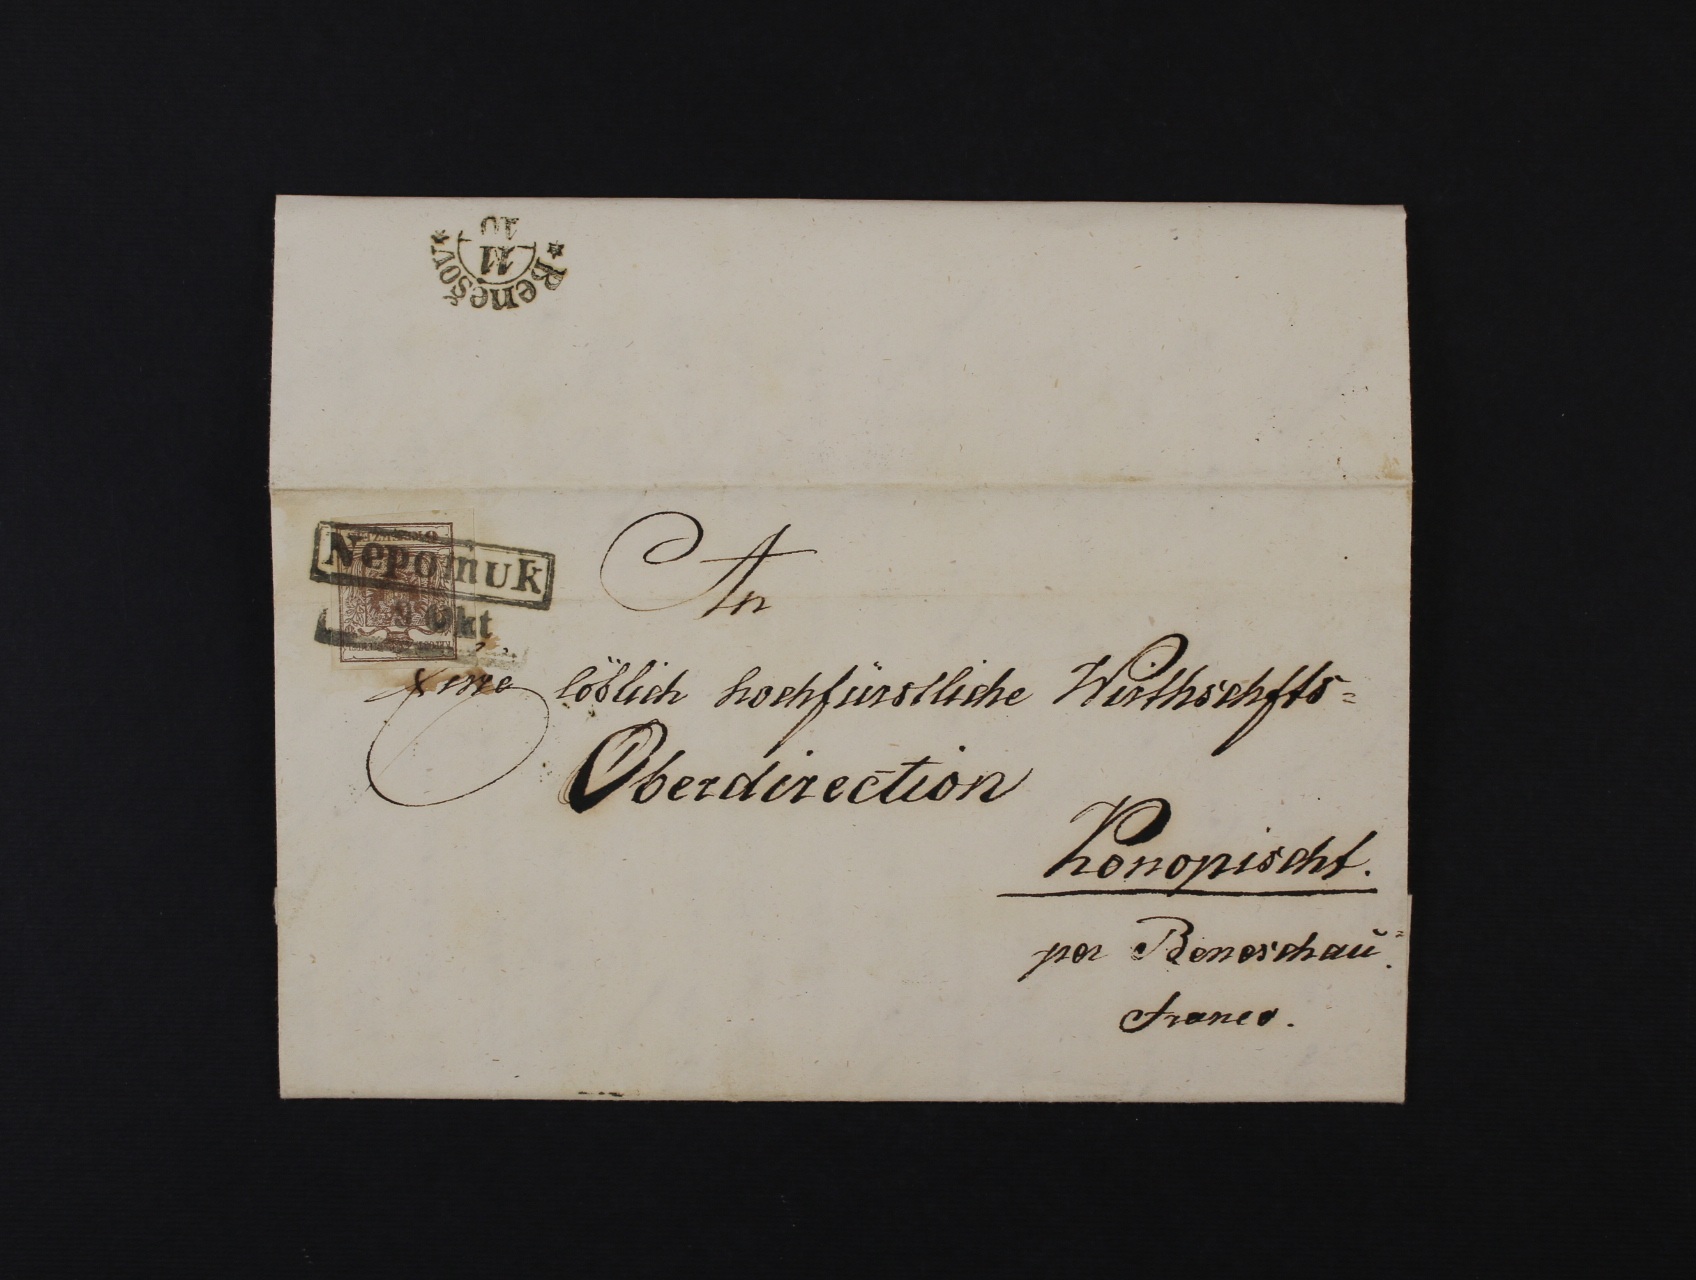 * Benešov. *
11
10
Nepomuk
9 Okt
An
Eine löblich hochfürstliche Wirthschfts=
Oberdirection
Konopischt.
per Beneschau
franco.